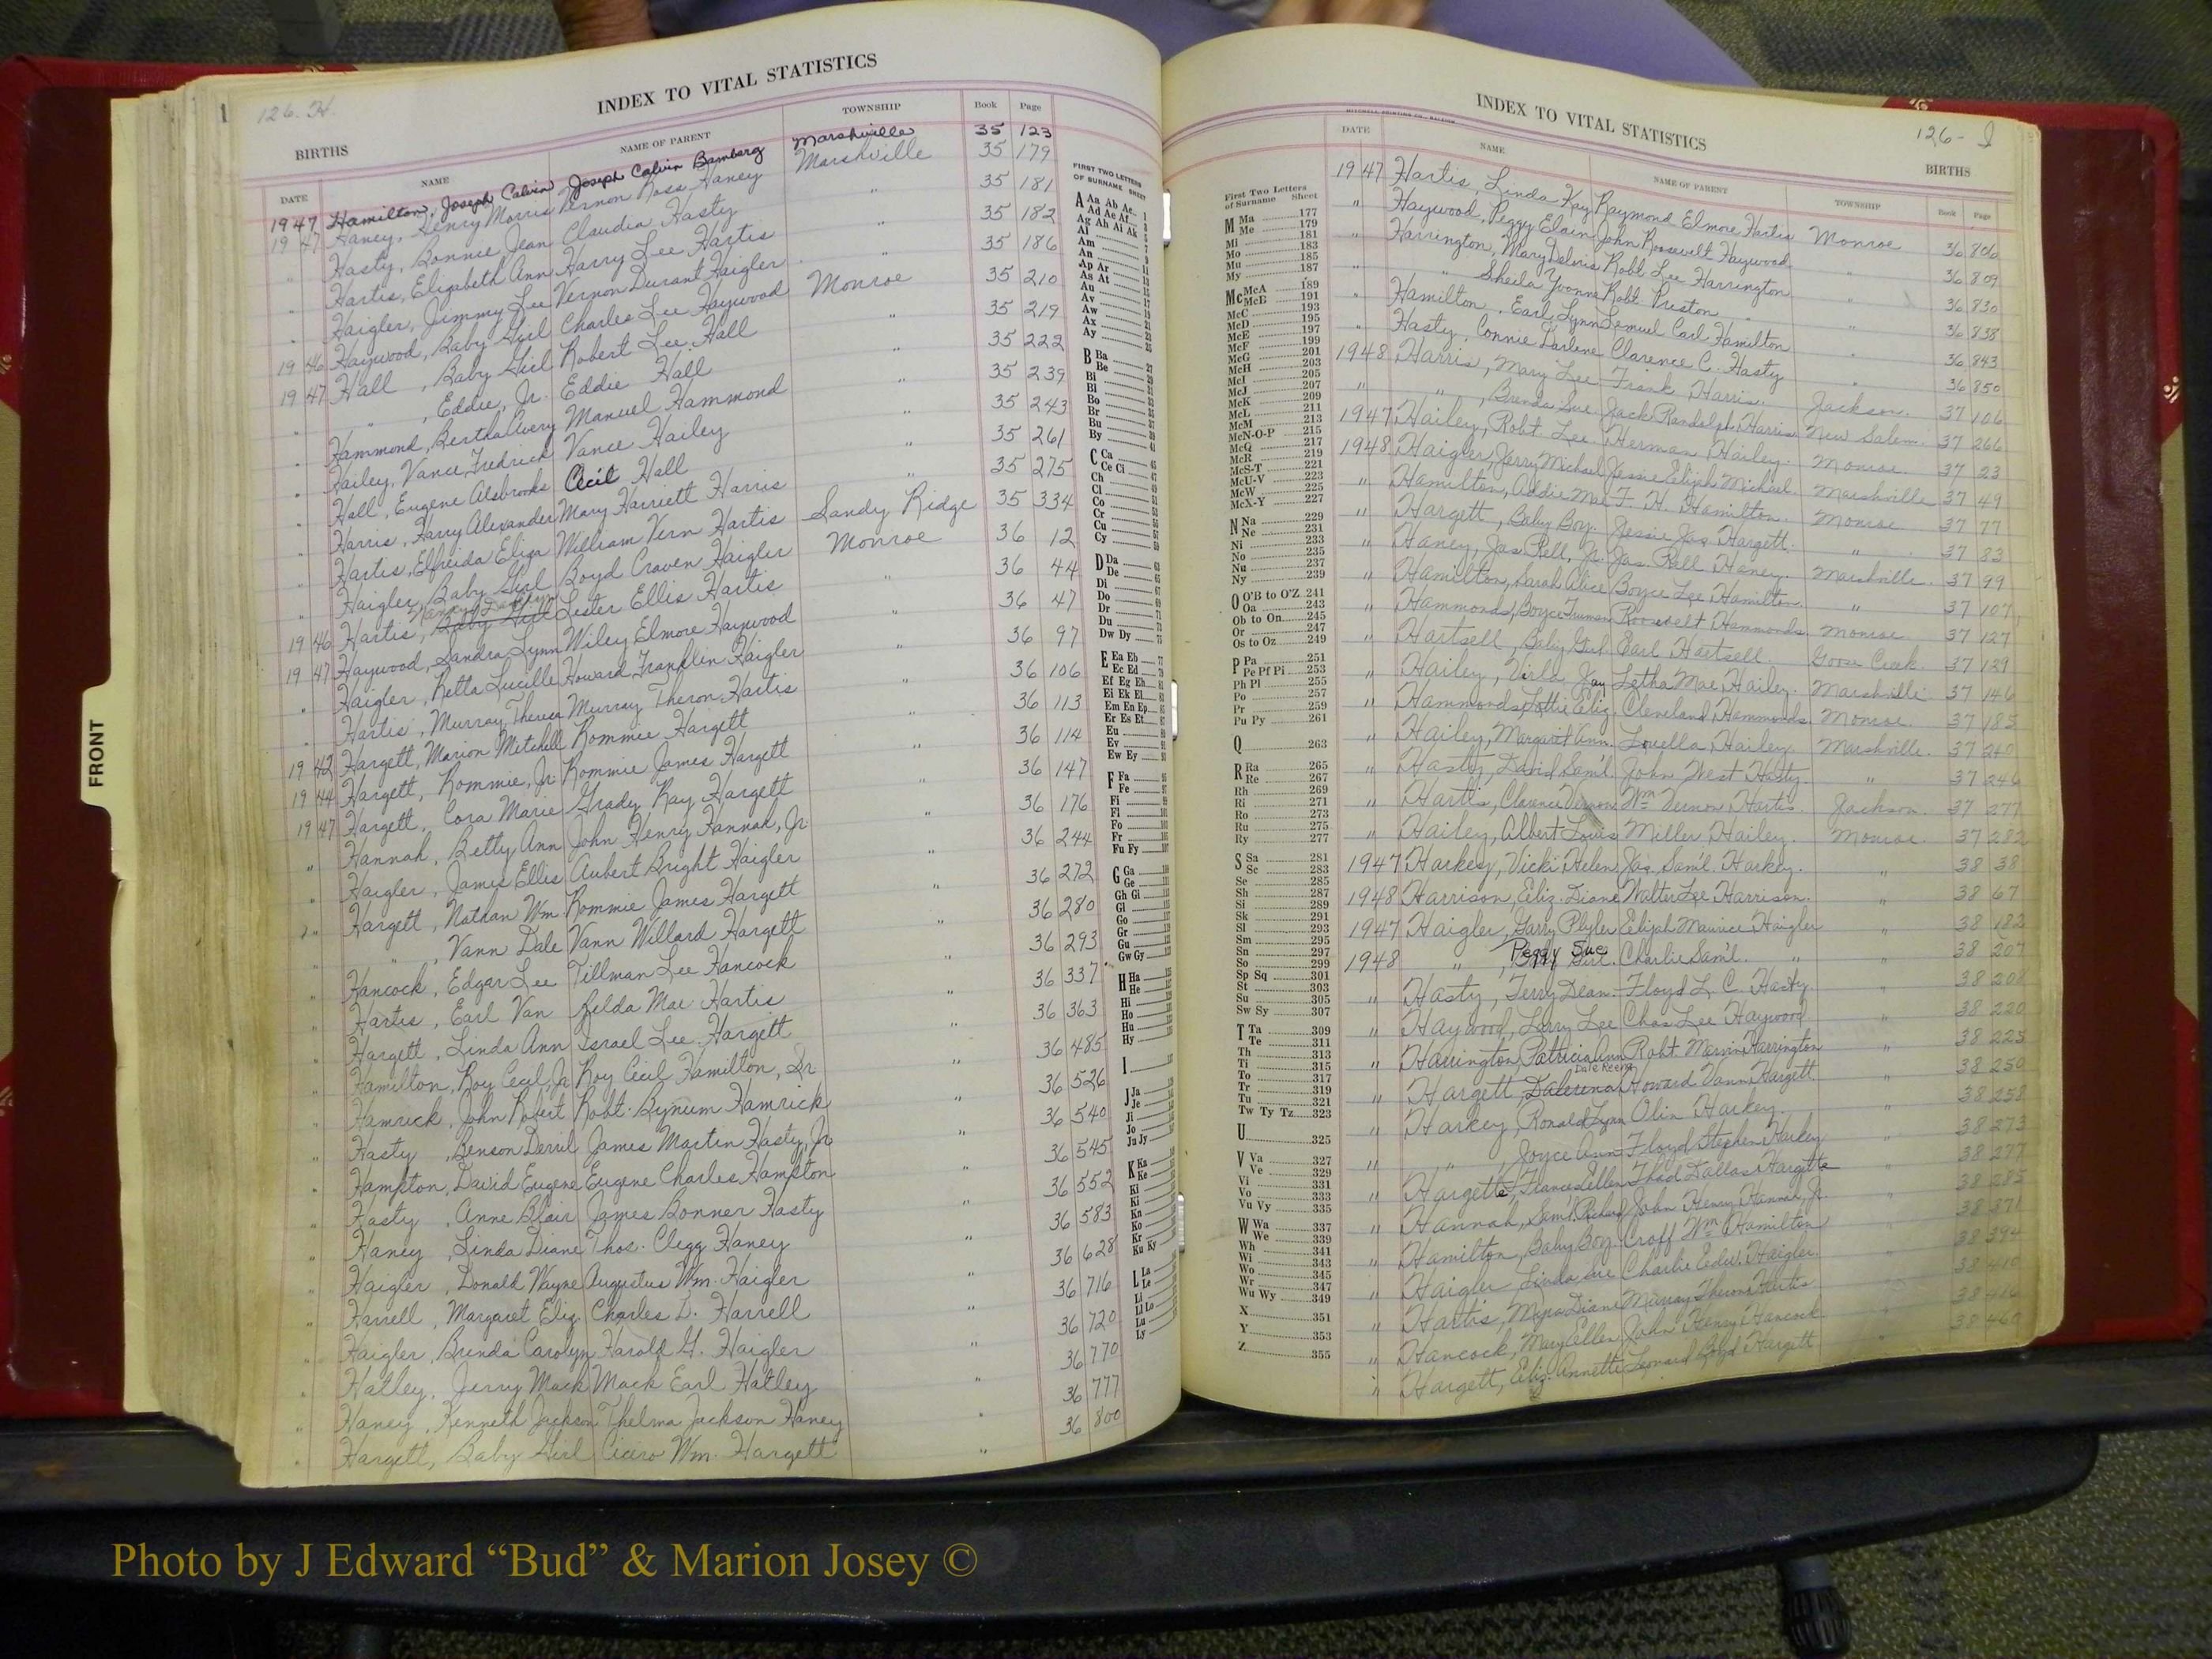 126-H
INDEX TO VITAL STATISTICS
BIRTHS
DATE NAME NAME OF PARENT TOWNSHIP Book Page
1947 Hamilton, Joseph Calvin Joseph Calvin Bamberg Marshville 35 123
1947 Haney, Henry Morris Vernon Ross Haney Marshville 35 179
" Hasty, Bonnie Jean Claudia Hasty " 35 181
" Hartis, Elizabeth Ann Harry Lee Hartis " 35 182
" Haigler, Jimmy Lee Vernon Durant Haigler " 35 186
1946 Haywood, Baby Girl Charles Lee Haywood Monroe 35 210
1947 Hall, Baby Girl Robert Lee Hall " 35 219
" ", Eddie, Jr. Eddie Hall " 35 222
" Hammond, Bertha Avery Manuel Hammond " 35 239
" Hailey, Vance Fredrick Vance Hailey " 35 243
" Hall, Eugene Alsbrooks Cecil Hall " 35 261
" Harris, Harry Alexander Mary Harriett Harris " 35 275
" Hartis, Elfreida Eliza William Vern Hartis Sandy Ridge 35 334
" Haigler, Baby Girl Boyd Craven Haigler Monroe 36 12
1946 Hartis, Baby Girl Lester Ellis Hartis " 36 44
1947 Haywood, Sandra Lynn Wiley Elmore Haywood " 36 47
" Haigler, Retta Lucille Howard Franklin Haigler " 36 97
" Hartis, Murray Theresa Murray Theron Hartis " 36 106
1942 Hargett, Marion Mitchell Rommie Hargett " 36 113
1944 Hargett, Rommie, Jr. Rommie James Hargett " 36 114
1947 Hargett, Cora Marie Grady Ray Hargett " 36 147
" Hannah, Betty Ann John Henry Hannah, Jr. " 36 176
" Haigler, James Ellis Aubert Bright Haigler " 36 244
" Hargett, Nathan Wm Rommie James Hargett " 36 272
" ", Vann Dale Vann Willard Hargett " 36 280
" Hancock, Edgar Lee Tillman Lee Hancock " 36 293
" Hartis, Earl Van Zelda Mae Hartis " 36 337
" Hargett, Linda Ann Israel Lee Hargett " 36 363
" Hamilton, Roy Cecil, Jr Roy Cecil Hamilton, Sr " 36 485
" Hamrick, John Robert Robt. Bynum Hamrick " 36 526
" Hasty, Benson Derril James Martin Hasty, Jr " 36 540
" Hampton, David Eugene Eugene Charles Hampton " 36 545
" Hasty, Anne Blair James Bonner Hasty " 36 552
" Haney, Linda Diane Thos. Clegg Haney " 36 583
" Haigler, Donald Wayne Augustus Wm. Haigler " 36 628
" Harrell, Margaret Eliz Charles D. Harrell " 36 716
" Haigler, Brenda Carolyn Harold G. Haigler " 36 720
" Hatley, Jerry Mack Mack Earl Hatley " 36 770
" Haney, Kenneth Jackson Thelma Jackson Haney " 36 777
" Hargett, Baby Girl Cicero Wm. Hargett " 36 800
FIRST TWO LETTERS
OF SURNAME SHEET
A Aa Ab Ac
Ad Ae Af
Ag Ah Ai Ak
Al
Am
An
Ap Ar
As At
Au
Av
Aw
Ax
Ay
B Ba
Be
Bi
Bl
Bo
Br
Bu
By
C Ca
Ce Ci
Ch
Cl
Co
Cr
Cu
Cy
D Da
De
Di
Do
Dr
Du
Dw Dy
E Ea Eb
Ec Ed
Ef Eg Eh
Ei Ek El
Em En Ep
Er Es Et
Eu
Ev
Ew Ey
F Fa
Fe
Fi
Fl
Fo
Fr
Fu Fy
G Ga
Ge
Gh Gi
Gl
Go
Gr
Gu
Gw Gy
H Ha
He
Hi
Ho
Hu
Hy
I
J Ja
Je
Ji
Jo
Ju Jy
K Ka
Ke
Ki
Kn
Ko
Kr
Ku Ky
L La
Le
Li
Ll Lo
Lu
Ly
FRONT
INDEX TO VITAL STATISTICS
126-I
BIRTHS
DATE NAME NAME OF PARENT TOWNSHIP Book Page
1947 Hartis, Linda Kay Raymond Elmore Hartis Monroe 36 806
" Haywood, Peggy Elain John Roosevelt Haywood " 36 809
" Harrington, Mary Deloris Robt. Lee Harrington " 36 830
" " Sheila Yvonne Robt. Preston " " 36 838
" Hamilton, Earl Lynn Lemuel Carl Hamilton " 36 843
" Hasty, Connie Darlene Clarence C. Hasty " 36 850
1948 Harris, Mary Lee Frank Harris Jackson 37 106
" ", Brenda Sue Jack Randolph Harris New Salem 37 266
1947 Hailey, Robt. Lee Herman Hailey Monroe 37 23
1948 Haigler, Jerry Michael Jessie Elijah Michael Marshville 37 49
" Hamilton, Addie Mae F. H. Hamilton Monroe 37 77
" Hargett, Baby Boy Jessie Jas. Hargett " 37 83
" Haney, Jas. Rell, Jr. Jas. Rell Haney Marshville 37 99
" Hamilton, Sarah Alice Boyce Lee Hamilton " 37 107
" Hammonds, Boyce Truman Roosevelt Hammonds Monroe 37 127
" Hartsell, Baby Girl Earl Hartsell Goose Creek 37 129
" Hailey, Virla Jay Letha Mae Hailey Marshville 37 146
" Hammonds, Lottie Eliz. Cleveland Hammonds Monroe 37 185
" Hailey, Margaret Ann Louella Hailey Marshville 37 240
" Hasty, David Sam'l John West Hasty " 37 246
" Hartis, Clarence Vernon Wm Vernon Hartis Jackson 37 277
" Hailey, Albert Louis Miller Hailey Monroe 37 282
1947 Harkey, Vicki Helen Jas. Sam'l Harkey " 38 38
1948 Harrison, Eliz. Diane Walter Lee Harrison " 38 67
1947 Haigler, Garry Plyler Elijah Maurice Haigler " 38 182
1948 ", Peggy Sue Charlie Sam'l " " 38 207
" Hasty, Terry Dean Floyd L. C. Hasty " 38 208
" Haywood, Larry Lee Chas Lee Haywood " 38 220
" Harrington, Patricia Ann Robt. Marvin Harrington " 38 225
Dale Reena
" Hargett, Howard Vann Hargett " 38 250
" Harkey, Ronald Lynn Olin Harkey " 38 258
" ", Joyce Ann Floyd Stephen Harkey " 38 273
" Hargette, Frances Ellen Thad Dallas Hargette " 38 277
" Hannah, Sam'l Richard John Henry Hannah, Jr. 38 285
" Hamilton, Baby Boy Croff Wm Hamilton 38 371
" Haigler Linda Sue Charlie Edw. Haigler 38 394
" Hartis, Myra Diane Murray Theron Hartis 38
" Hancock, Mary Ellen John Henry Hancock 38
" Hargett, Eliz Annette Leonard Boyd Hargett 38
First Two Letters
of Surname Sheet
M Ma 177
Me 179
Mi 181
Mo 183
Mu 185
My 187
Mc McA 189
McB 191
McC 193
McD 195
McE 197
McF 199
McG 201
McH 203
McI 205
McJ 207
McK 209
McL 211
McM 213
McN-O-P 215
McQ 217
McR 219
McS-T 221
McU-V 223
McW 225
McX-Y 227
N Na 229
Ne 231
Ni 233
No 235
Nu 237
Ny 239
O O'B to O'Z 241
Oa 243
Ob to On 245
Or 247
Os to Oz 249
P Pa 251
Pe Pf Pi 253
Ph Pl 255
Po 257
Pr 259
Pu Py 261
Q 263
R Ra 265
Re 267
Rh 269
Ri 271
Ro 273
Ru 275
Ry 277
S Sa 281
Sc 283
Se 285
Sh 287
Si 289
Sk 291
Sl 293
Sm 295
Sn 297
So 299
Sp Sq 301
St 303
Su 305
Sw Sy 307
T Ta 309
Te 311
Th 313
Ti 315
To 317
Tr 319
Tu 321
Tw Ty Tz 323
U 325
V Va 327
Ve 329
Vi 331
Vo 333
Vu Vy 335
W Wa 337
We 339
Wh 341
Wi 343
Wo 345
Wr 347
Wu Wy 349
X 351
Y 353
Z 355
Photo by J Edward “Bud” & Marion Josey ©